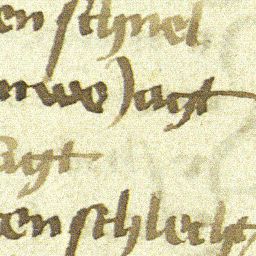 en schnel
uwe jagt
agt
en schlecht